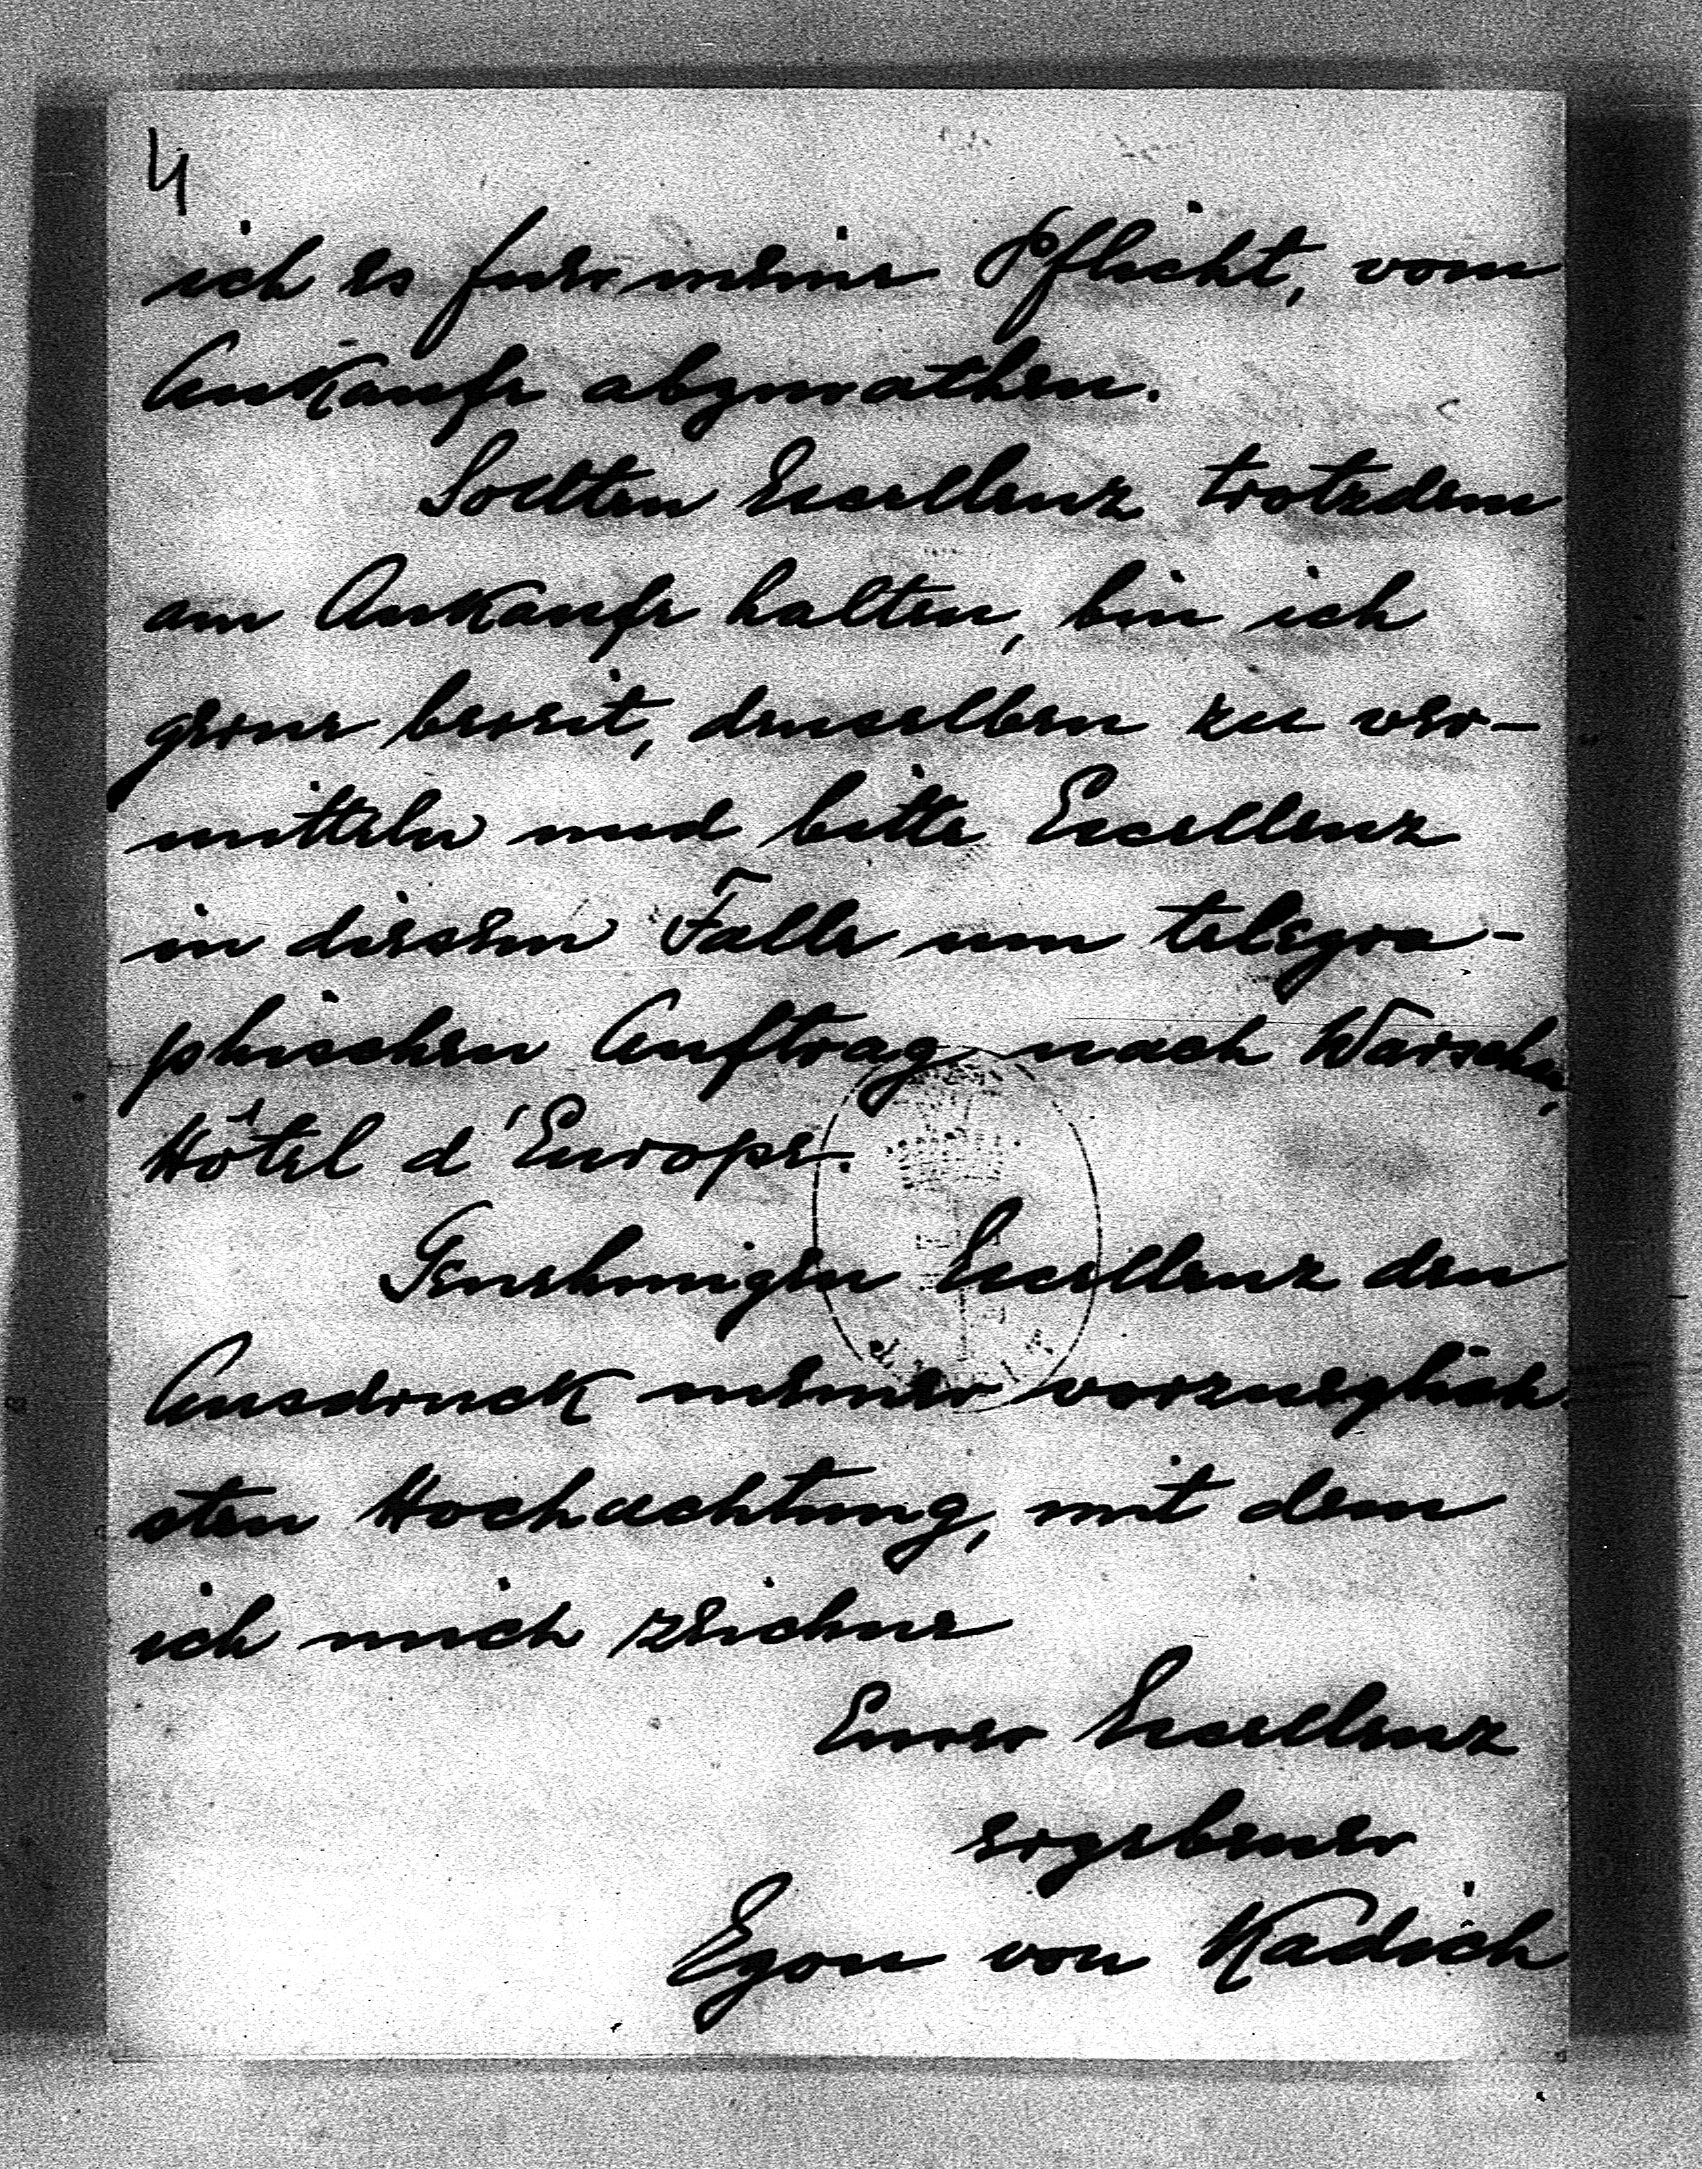 4
ich es fuer meine Pflicht, vom
Ankaufe abzurathen.
Sollten Excellenz trotzdem
am Ankaufe halten, bin ich
gerne bereit, denselben zu ver-
mitteln und bitte Excellenz
in diesem Falle um telegra-
phischen Auftrag nach Warschau,
Hôtel d'Europe.
Genehmigen Excellenz den
Ausdruck meiner vorzueglich-
sten Hochachtung, mit dem
ich mich zeichne
Eurer Excellenz
ergebener
Egon von Kadich